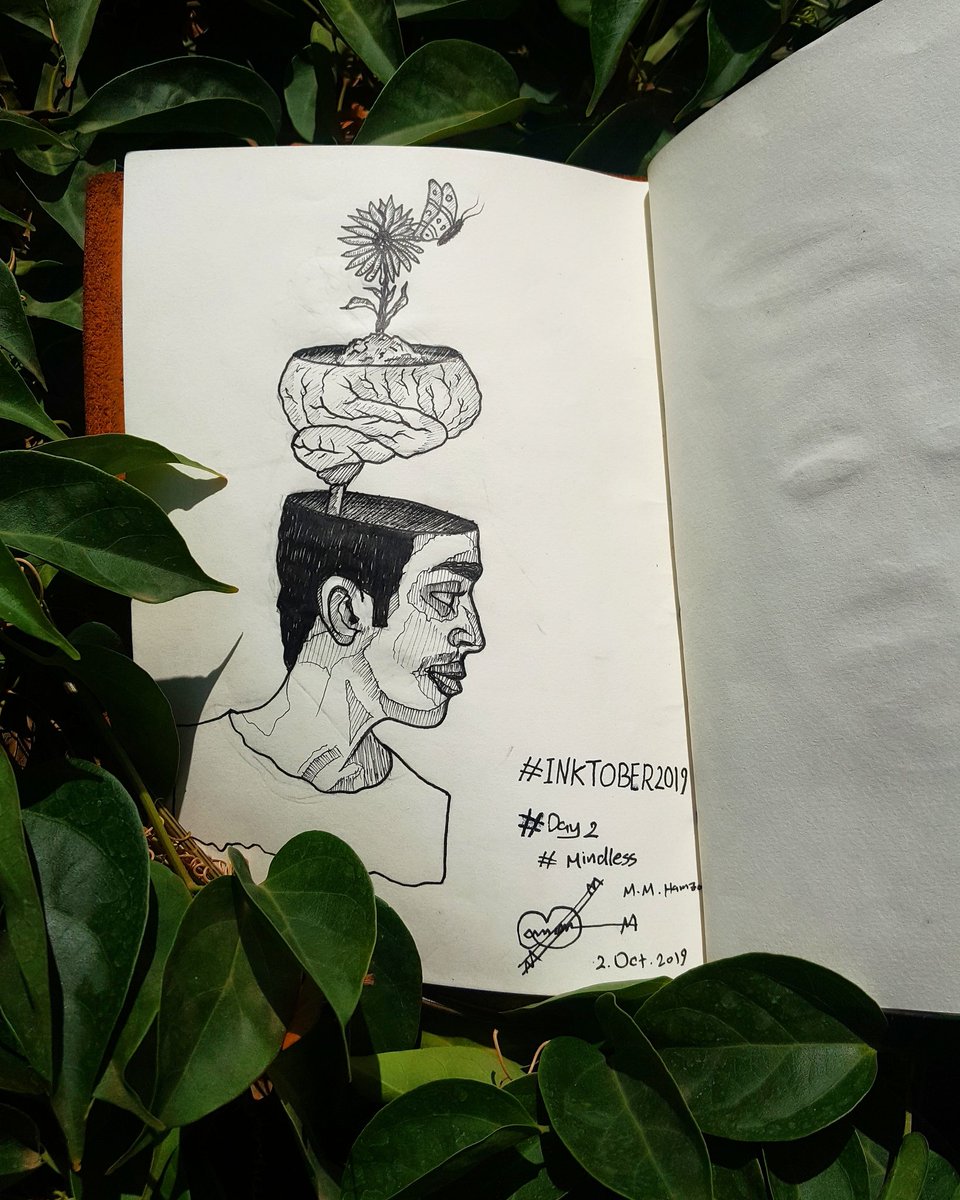 #INKTOBER2019
#Day 2
# Mindless
M.M. Hamza
M
2.Oct.2019